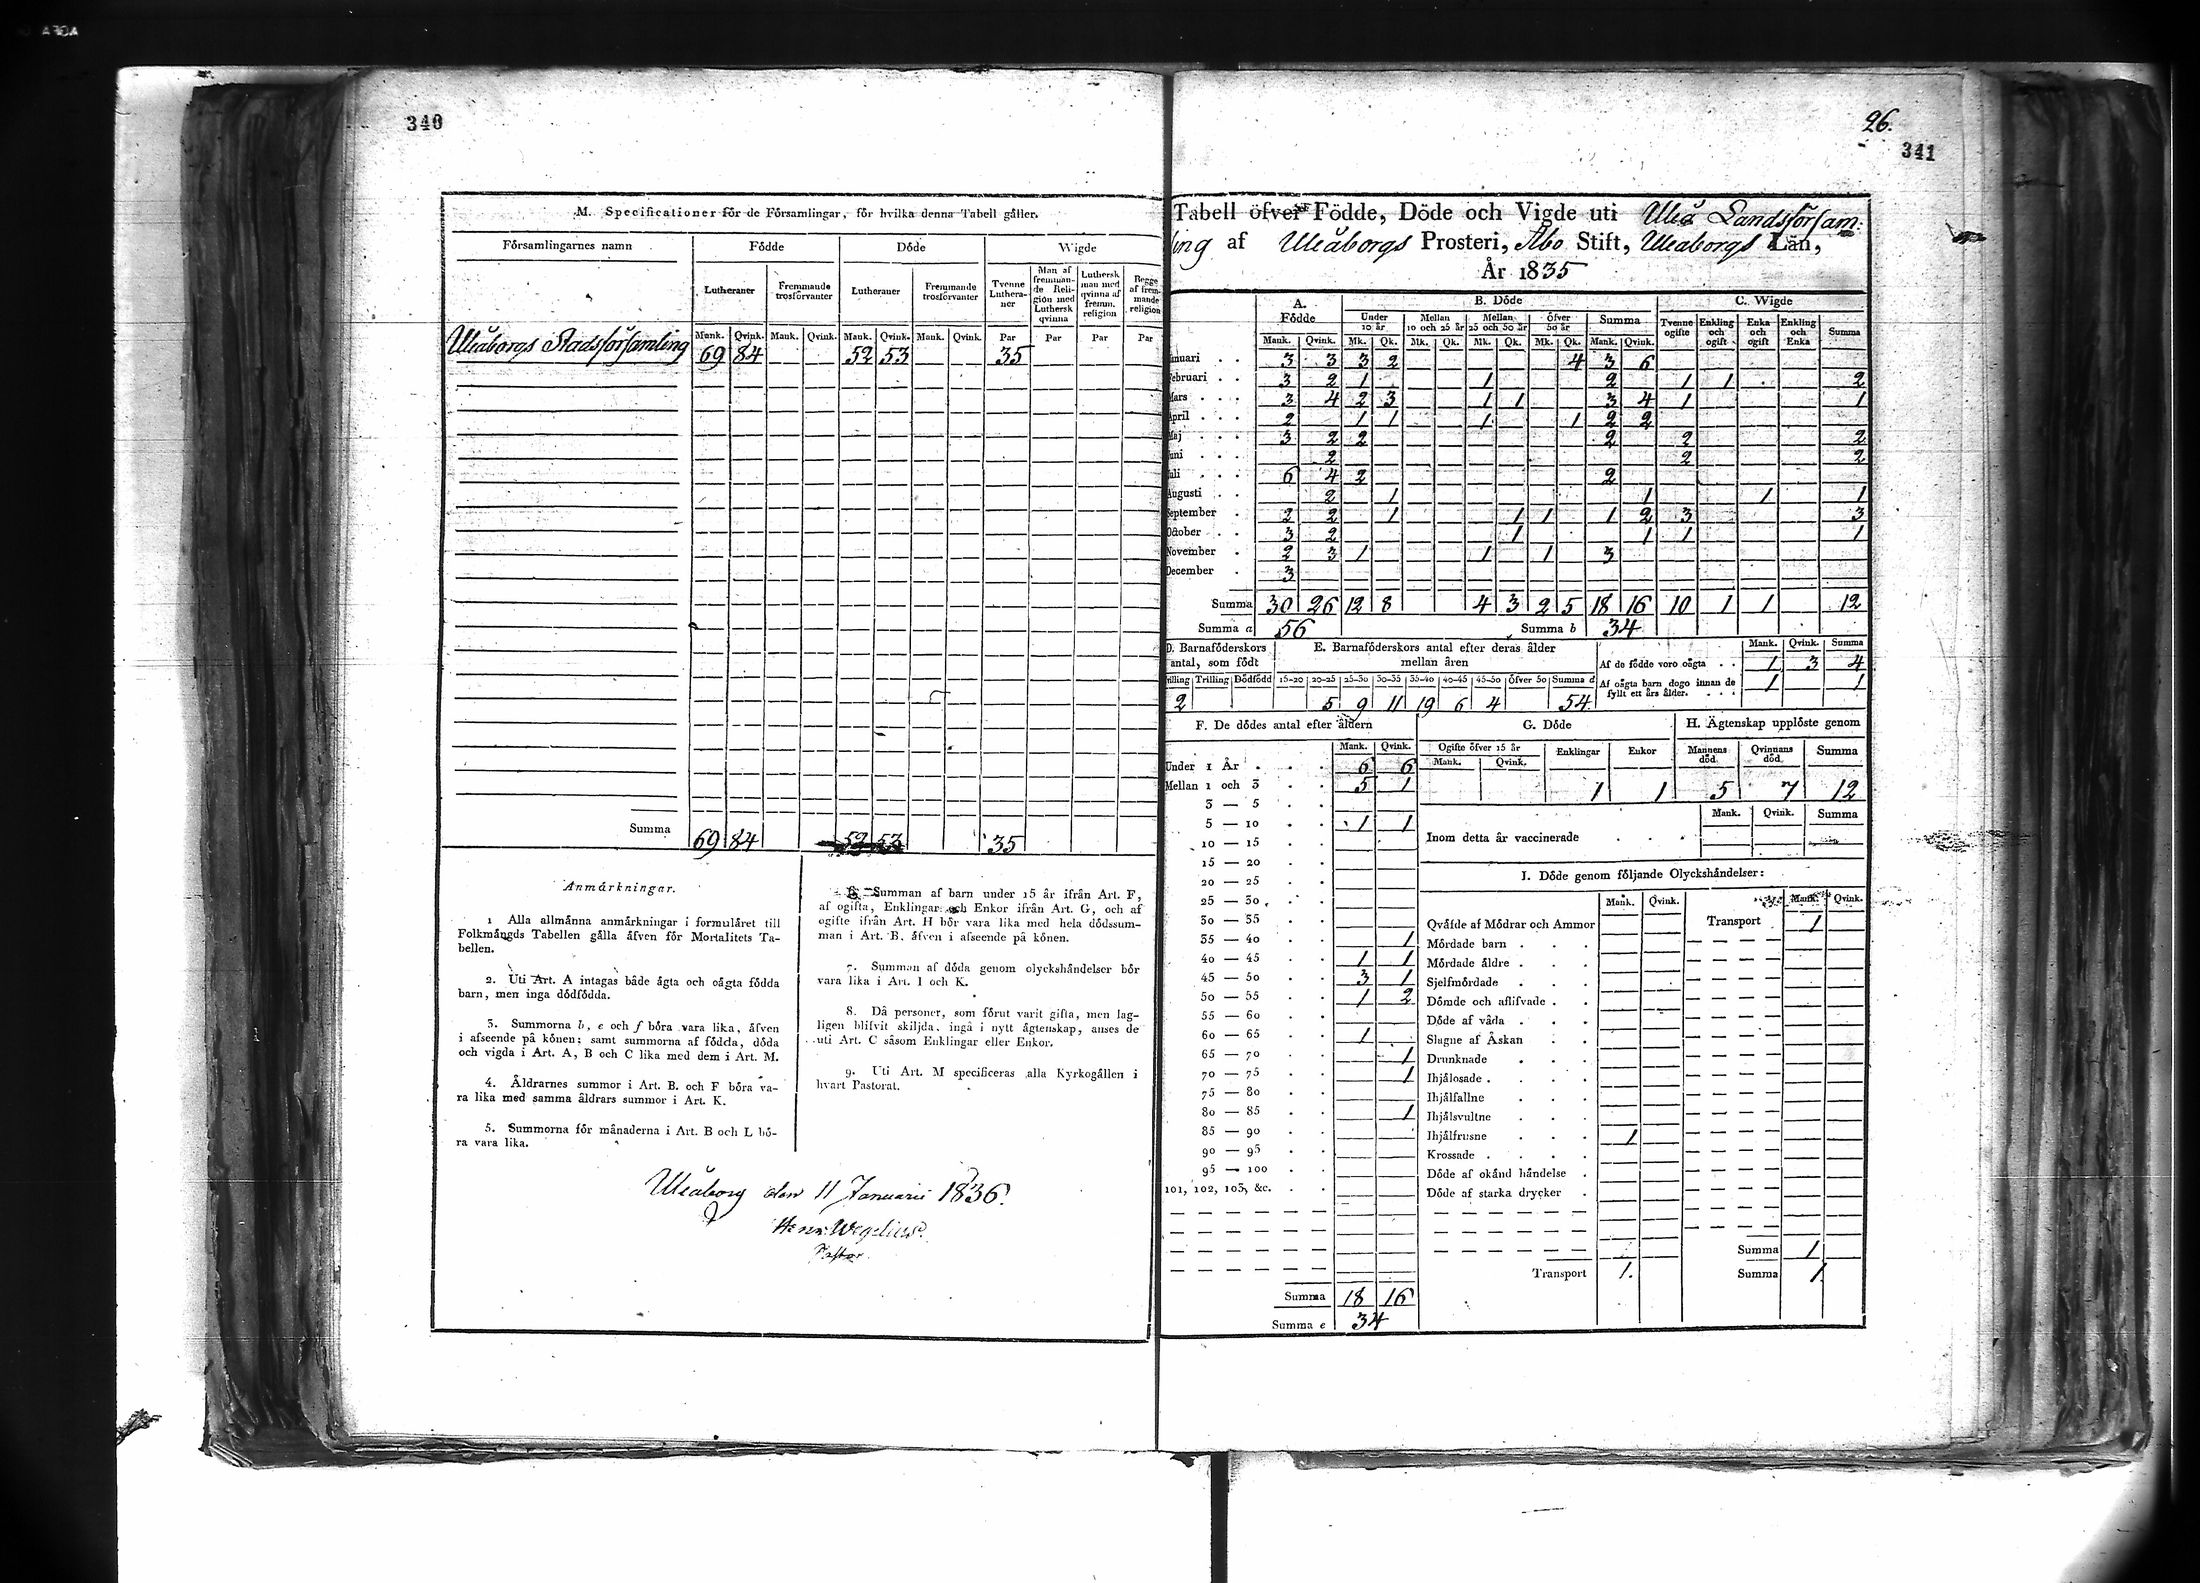 340
M. Specificationer för de Församlingar, för hvilka denna Tabell gäller.
Församlingarnes namn | Födde | Döde | Wigde
Lutheraner | Fremmande trosförvanter | Lutheraner | Fremmande trosförvanter | Tvenne Lutheraner | Man af fremmande Religion med Luthersk qvinna | Luthersk man med qvinna af fremm. religion | Begge af fremmande religion
Mank. | Qvink. | Mank. | Qvink. | Mank. | Qvink. | Mank. | Qvink. | Par | Par | Par | Par
Uleåborgs Stadsförsamling | 69 | 84 | 52 | 53 | 35
Summa | 69 | 84 | 52 | 53 | 35
Anmärkningar.
1 Alla allmänna anmärkningar i formuläret till
Folkmängds Tabellen gälla äfven för Mortalitets Ta-
bellen.
2. Uti Art. A intagas både ägta och oägta födda
barn, men inga dödfödda.
3. Summorna b, e och f böra vara lika, äfven
i afseende på könen; samt summorna af födda, döda
och vigda i Art. A, B och C lika med dem i Art. M.
4. Åldrarnes summor i Art. B. och F böra va-
ra lika med samma åldrars summor i Art. K.
5. Summorna för månaderna i Art. B och L bö-
ra vara lika.
6. Summan af barn under 15 år ifrån Art. F,
af ogifta, Enklingar och Enkor ifrån Art. G, och af
ogifte ifrån Art. H bör vara lika med hela dödssum-
man i Art. B, äfven i afseende på könen.
7. Summan af döda genom olyckshändelser bör
vara lika i Art. I och K.
8. Då personer, som förut varit gifta, men lag-
ligen blifvit skiljda, ingå i nytt ägtenskap, anses de
uti Art. C såsom Enklingar eller Enkor.
9. Uti Art. M specificeras alla Kyrkogällen i
hvart Pastorat.
Uleåborg den 11 Januarii 1836.
Henr. Wegelius.
Pastor.
26.
341
Tabell öfver Födde, Döde och Vigde uti Uleå Landsförsam-
ling af Uleåborgs Prosteri, Åbo Stift, Uleaborgs Län,
År 1835
A. Födde | B. Döde | C. Wigde
Under 10 år | Mellan 10 och 25 år | Mellan 25 och 50 år | Öfver 50 år | Summa | Tvenne ogifte | Enkling och ogift | Enka och ogift | Enkling och Enka | Summa
Mank. | Qvink. | Mk. | Qk. | Mk. | Qk. | Mk. | Qk. | Mk. | Qk. | Mank. | Qvink.
Januari | 3 | 3 | 3 | 2 | 4 | 3 | 6
Februari | 3 | 2 | 1 | 1 | 2 | 1 | 1 | 2
Mars | 3 | 4 | 2 | 3 | 1 | 1 | 3 | 4 | 1 | 1
April | 2 | 1 | 1 | 1 | 1 | 2 | 2
Maj | 3 | 2 | 2 | 2 | 2 | 2
Juni | 2 | 2 | 2
Juli | 6 | 4 | 2 | 2
Augusti | 2 | 1 | 1 | 1 | 1
September | 2 | 2 | 1 | 1 | 1 | 1 | 2 | 3 | 3
October | 3 | 2 | 1 | 1 | 1 | 1
November | 2 | 3 | 1 | 1 | 1 | 3
December | 3
Summa | 30 | 26 | 12 | 8 | 4 | 3 | 2 | 5 | 18 | 16 | 10 | 1 | 1 | 12
Summa a | 56 | Summa b | 34
D. Barnaföderskors antal, som födt
Tvilling | Trilling | Dödfödd
2
E. Barnaföderskors antal efter deras ålder mellan åren
15-20 | 20-25 | 25-30 | 30-35 | 35-40 | 40-45 | 45-50 | öfver 50 | Summa d
5 | 9 | 11 | 19 | 6 | 4 | 54
Mank. | Qvink. | Summa
Af de födde voro oägta | 1 | 3 | 4
Af oägta barn dogo innan de fyllt ett års ålder. | 1 | 1
F. De dödes antal efter åldern
Mank. | Qvink.
Under 1 År | 6 | 6
Mellan 1 och 3 | 5 | 1
3 — 5
5 — 10 | 1 | 1
10 — 15
15 — 20
20 — 25
25 — 30
30 — 35
35 — 40 | 1
40 — 45 | 1 | 1
45 — 50 | 3 | 1
50 — 55 | 1 | 2
55 — 60
60 — 65 | 1
65 — 70 | 1
70 — 75 | 1
75 — 80
80 — 85 | 1
85 — 90
90 — 95
95 — 100
101, 102, 103, &c.
Summa | 18 | 16
Summa e | 34
G. Döde
Ogifte öfver 15 år | Enklingar | Enkor
Mank. | Qvink.
1 | 1
H. Ägtenskap upplöste genom
Mannens död | Qvinnans död | Summa
5 | 7 | 12
Mank. | Qvink. | Summa
Inom detta år vaccinerade
I. Döde genom följande Olyckshändelser:
Mank. | Qvink. | Mank. | Qvink.
Qväfde af Mödrar och Ammor | Transport | 1
Mördade barn
Mördade äldre
Sjelfmördade
Dömde och aflifvade
Döde af våda
Slagne af Åskan
Drunknade
Ihjälosade
Ihjälfallne
Ihjälsvultne
Ihjälfrusne | 1
Krossade
Döde af okänd händelse
Döde af starka drycker
Summa | 1
Transport | 1. | Summa | 1.